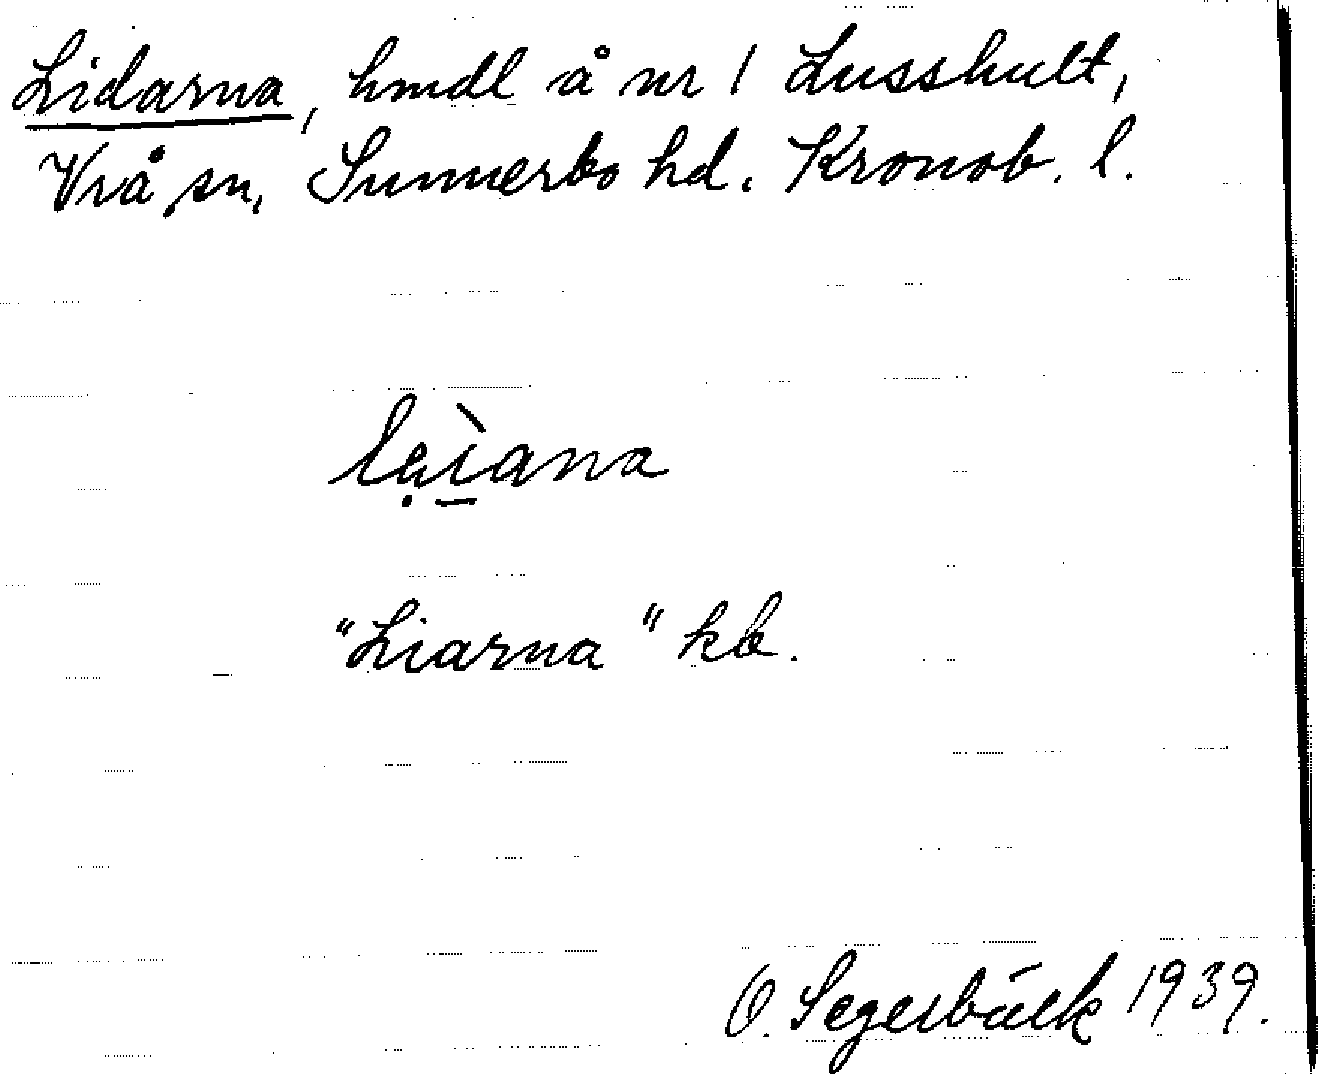 Lidarna, hmdl å nr 1 Lusshult,
Vrå sn, Sunnerbo hd. Kronob. l.
lẹì̱ana
"Liarna" kb.
O. Segerbäck 1939.